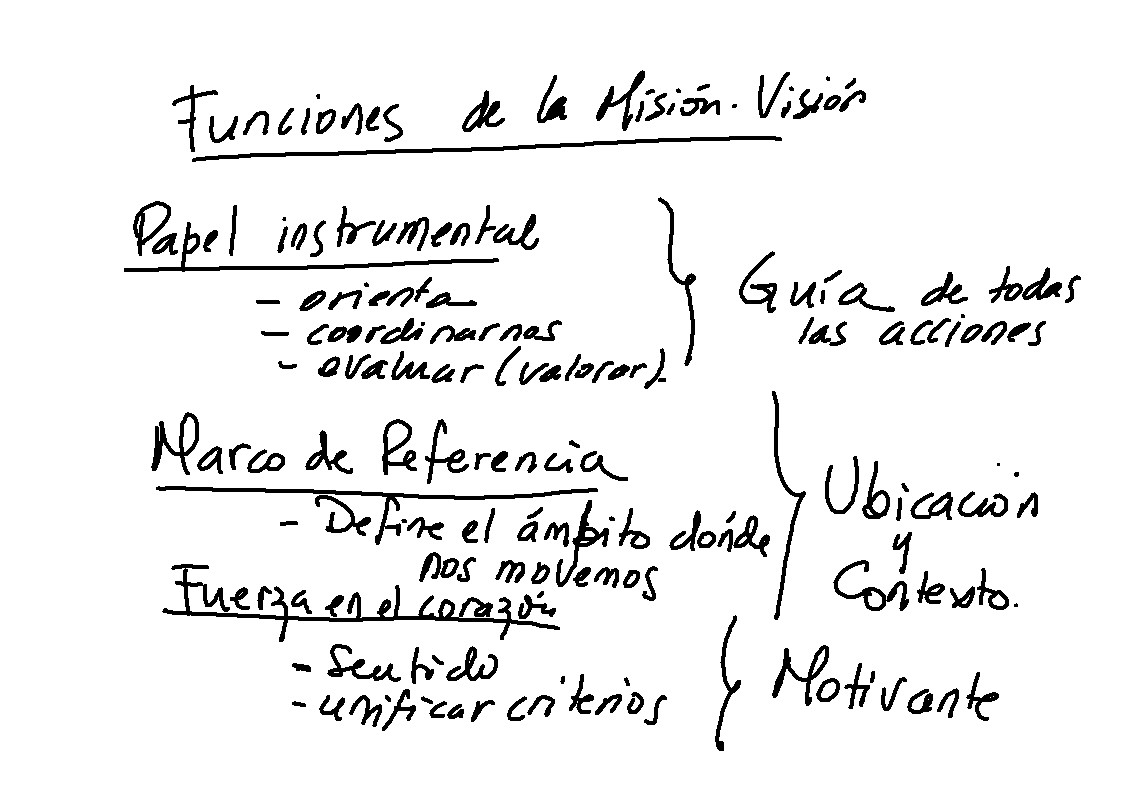 Funciones de la Misión-Visión
Papel instrumental
- orienta
- coordinarnos
- evaluar (valorar).
Guía de todas
las acciones
Marco de Referencia
- Define el ámbito dónde
nos movemos
Ubicación
y
Contexto.
Fuerza en el corazón
- sentido
- unificar criterios
Motivante